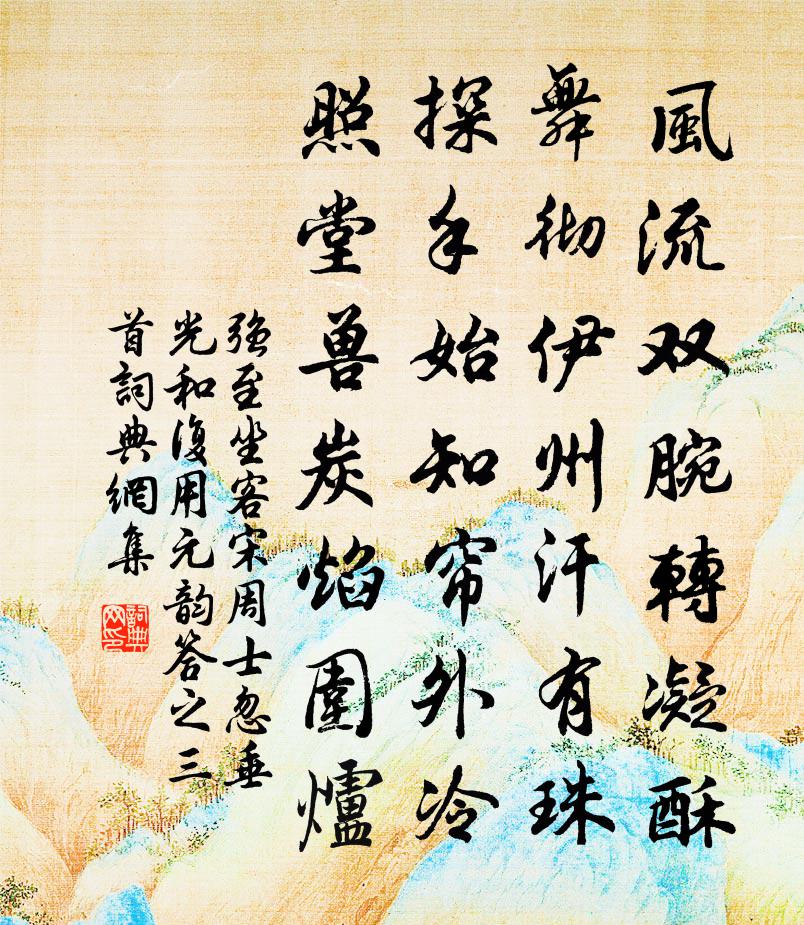 風流双腕轉凝酥
舞彻伊州汗有珠
探手始知帘外冷
照堂兽炭焰圍爐
强至坐客宋周士忽垂
光和復用元韵答之三
首詞典網集
詞典